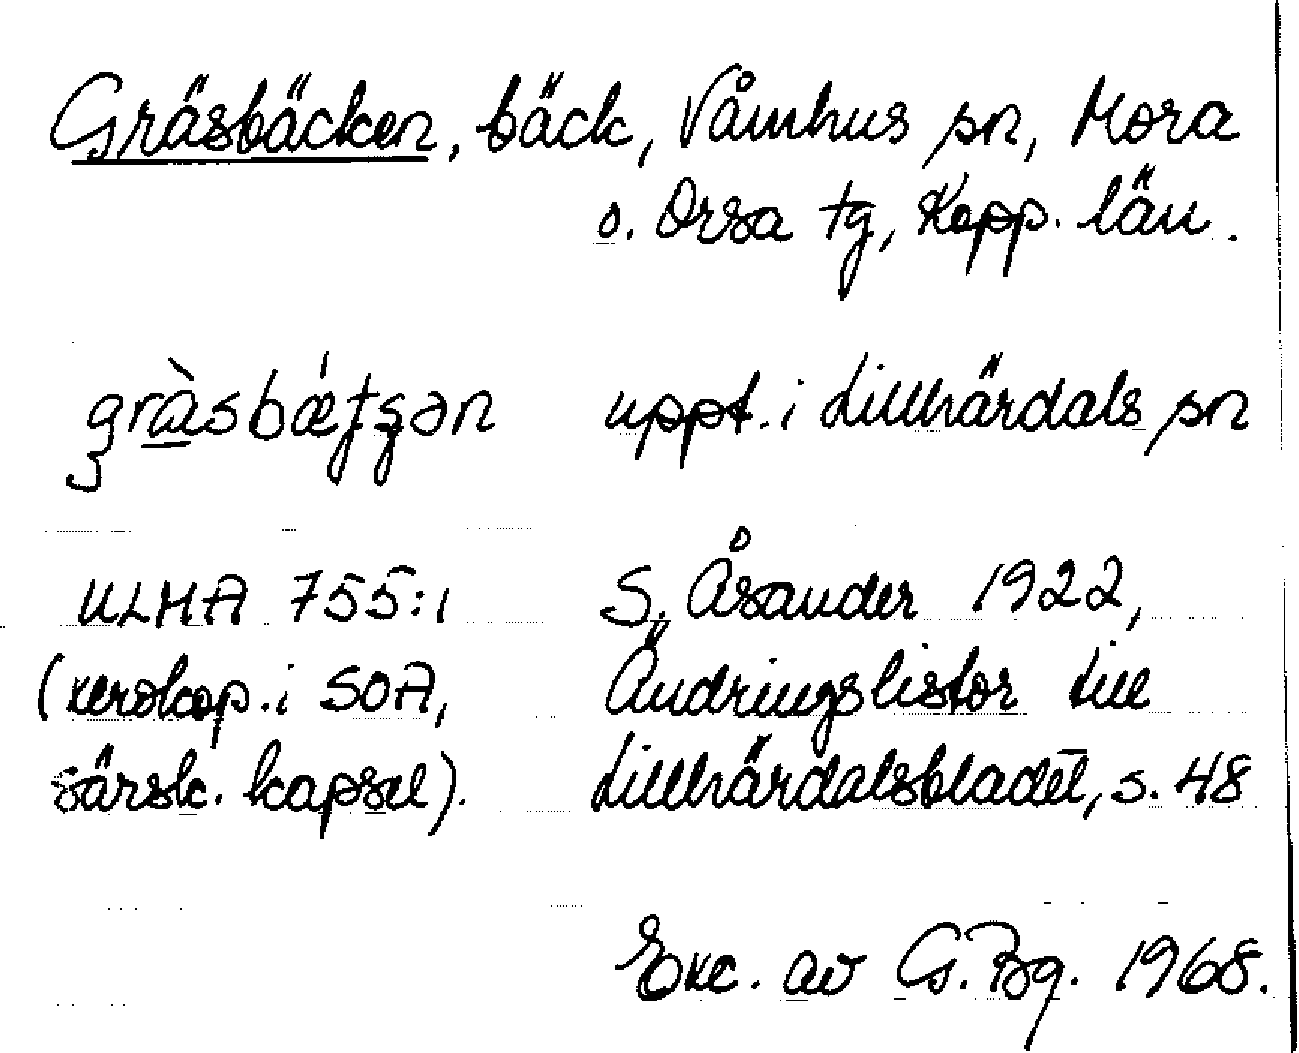 Gräsbäcken, bäck, Våmhus sn, Mora
o. Orsa tg, Kopp. län.
gràsbǽtʂən uppt. i Lillhärdals sn
ULMA 755:1 S. Åsander 1922,
(xerokop. i SOA, Ändringslistor till
särsk. kapsel). Lillhärdalsbladet, s. 48
Exc. av G. Bg. 1968.